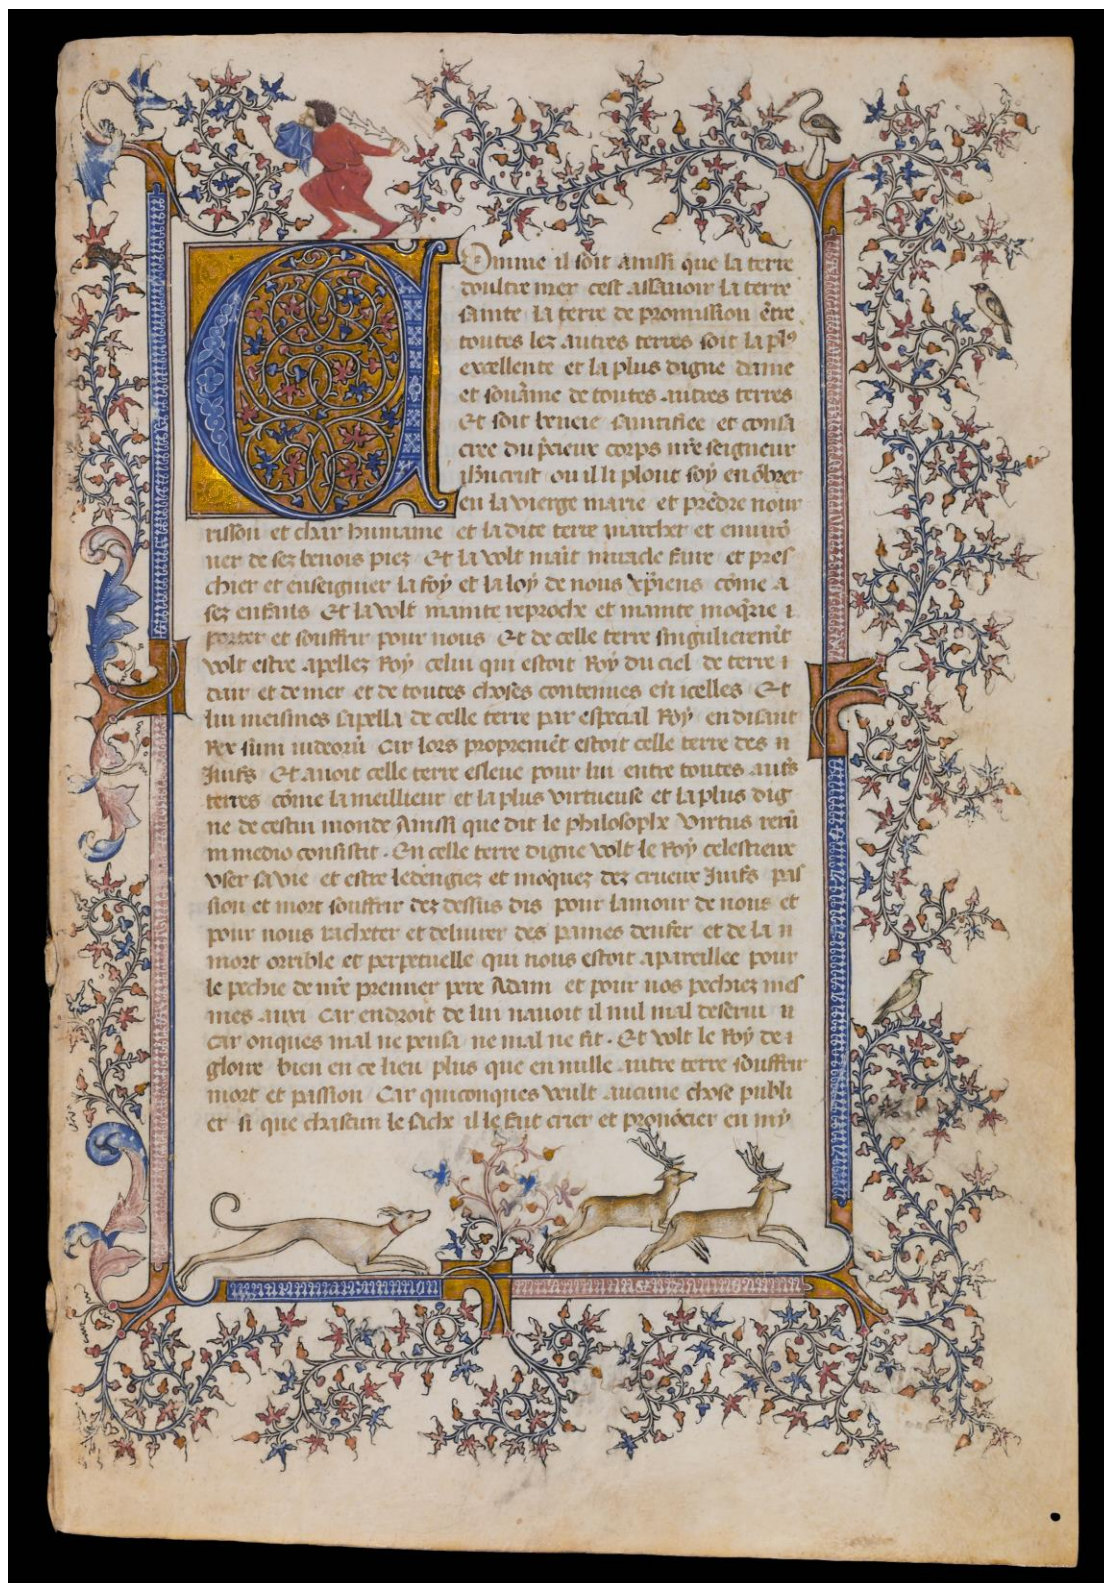 Comme il soit ainssi que la terre
doultre mer cest assavoir la terre
sainte la terre de promission ētre
toutes lez autres terres soit la plꝰ
excellente et la plus digne dame
et souv̄aine de toutes autres terres
Et soit beneie saintifiee et consa
cree du p̄cieux corps nr̄e seigneur
ih̄ucrist ou il li plout soy enōbrer
en la vierge marie et prēdre nour
risson et char humaine et la dite terre marcher et enuirō
ner de sez benois piez Et la volt maīt miracle faire et pres
chier et enseignier la foy et la loy de nous xp̄iens cōme a
sez enfans Et la volt mainte reproche et mainte moq̄rie i
porter et souffrir pour nous Et de celle terre singulieremēt
volt estre apellez Roy celui qui estoit Roy du ciel de terre i
dair et de mer et de toutes choses contenues en icelles Et
lui meismes sapella de celle terre par especial Roy en disant
Rex sum iudeorū Car lors propremēt estoit celle terre des n
Juifs Et avoit celle terre esleue pour lui entre toutes aut̄s
terres cōme la meillieur et la plus virtueuse et la plus dig
ne de cestui monde Ainssi que dit le philosophe Virtus rerū
in medio consistit . En celle terre digne volt le Roy celestieux
user sa vie et estre ledengiez et moquez dez crueux Juifs pas
sion et mort souffrir dez dessus dis pour lamour de nous et
pour nous racheter et delivrer des paines denfer et de la n
mort orrible et perpetuelle qui nous estoit apareillee pour
le pechie de nr̄e premier pere Adam et pour nos pechiez mes
mes auxi Car endroit de lui navoit il nul mal deservi n
car onques mal ne pensa ne mal ne fit . Et volt le Roy de i
gloire bien en ce lieu plus que en nulle autre terre souffrir
mort et passion Car quiconques veult aucune chose publi
er si que chascun le sache il le fait crier et pronōcier en my